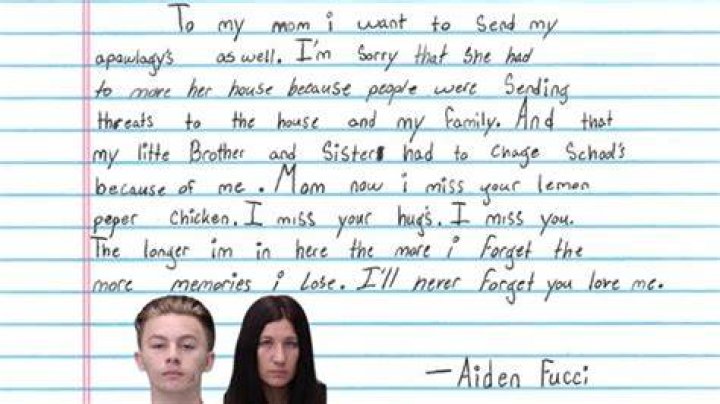 To my mom i want to send my
apawlagy's as well. I'm sorry that she had
to move her house because people were sending
threats to the house and my family. And that
my litte Brother and Sisters had to chage School's
because of me. Mom now i miss your lemon
peper chicken. I miss your hug's. I miss you.
The longer im in here the more i forget the
more memories i lose. I'll never forget you love me.
—Aiden Fucci